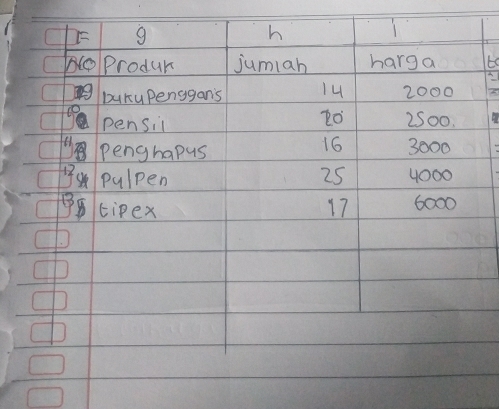 F g h I
no Produk jumlah harga
9 bukupenggaris 14 2000
10 Pensil 20 2500
11 Penghapus 16 3000
12 PulPen 25 4000
13 tipex 17 6000